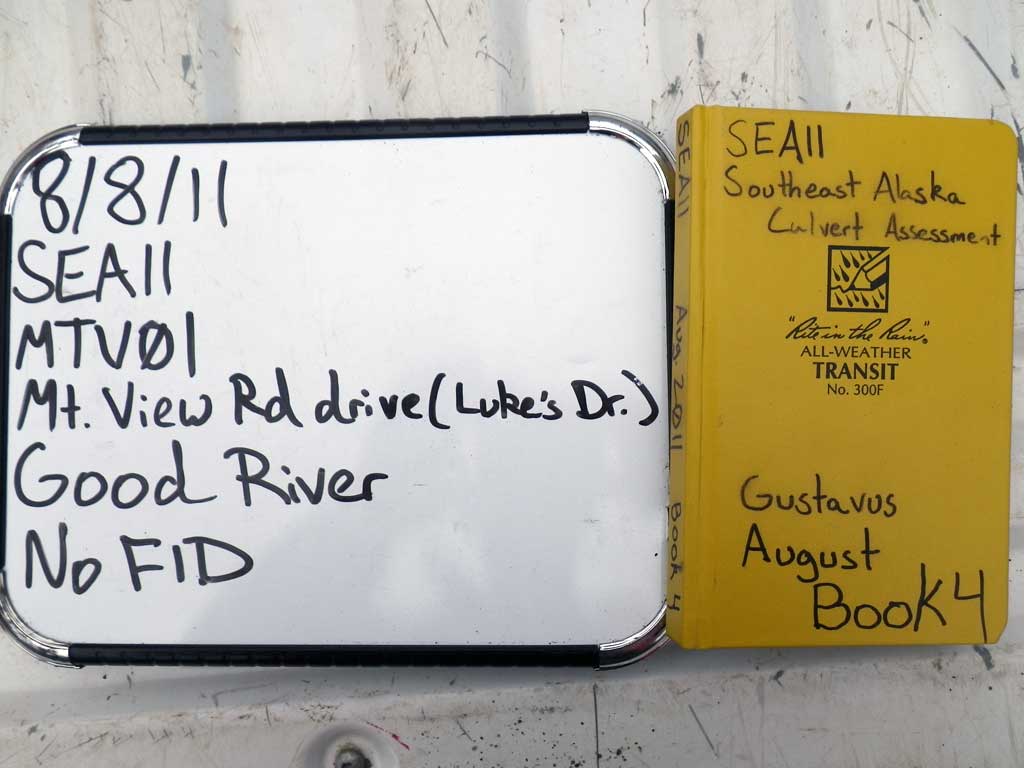 8/8/11
SEA11
MTVØ1
Mt. View Rd drive (Luke's Dr.)
Good River
No FID
SEA11 Aug 2011 Book 4
SEA11
Southeast Alaska
Culvert Assessment
"Rite in the Rain"®
ALL-WEATHER
TRANSIT
No. 300F
Gustavus
August
Book 4